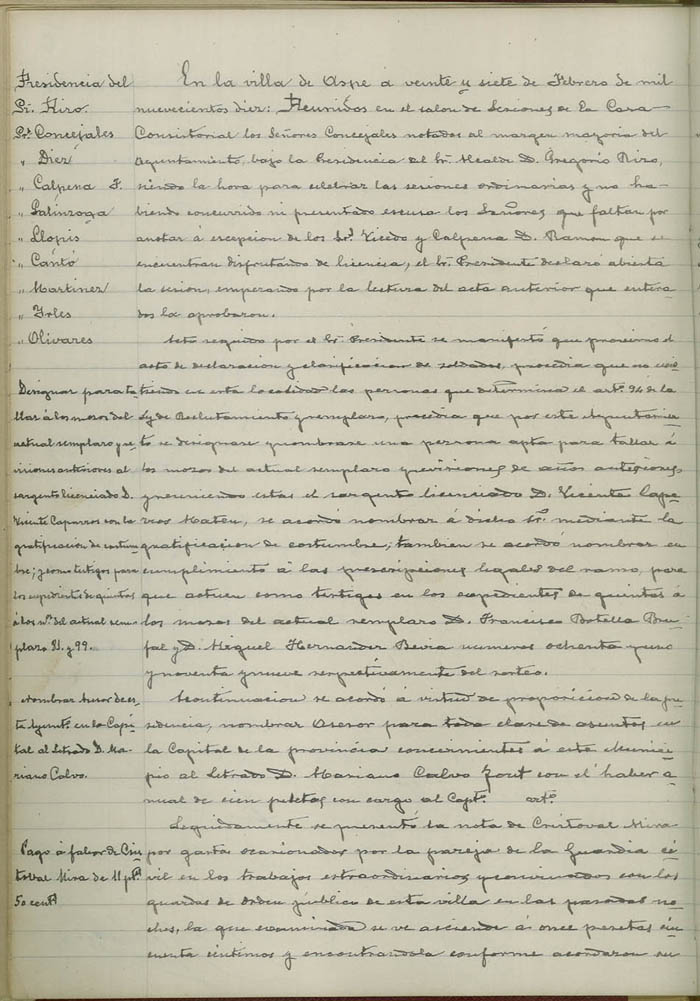 Presidencia del
Sr. Rizo.
Srs. Concejales
" Diez
" Calpena F.
" Galinsoga
" Llopis
" Cantó
" Martinez
" Irles
" Olivares
En la villa de Aspe á veinte y siete de Febrero de mil
nuevecientos diez: Reunidos en el salon de Sesiones de la Casa
Consistorial los Señores Concejales notados al margen mayoria del
Ayuntamiento, bajo la Presidencia del Sr. Alcalde D. Gregorio Rizo,
siendo la hora para celebrar las sesiones ordinarias y no ha-
biendo concurrido ni presentado escusa los Señores que faltan por
anotar á escepcion de los Srs. Vicedo y Calpena D. Ramon que se
encuentran disfrutando de licencia, el Sr. Presidente declaró abierta
la sesion, empezando por la lectura del acta anterior que entera-
dos la aprobaron.
Acto seguido por el Sr. Presidente se manifestó que proximo el
acto de declaracion y clasificacion de soldados, procedia que no exis
Designar para ta
llar á los mozos del
actual remplazo y re
visiones anteriores al
sargento licenciado D.
Vicente Caparros con la
gratificacion de costum
bre; y como testigos para
los expedientes de quintas
á los nos. del actual rem-
plazo 81. y 99.
tiendo en esta localidad las personas que determina el arto. 94 de la
Ley de Reclutamiento y remplazo, procedia que por este Ayuntamien
to se designase y nombrase una persona apta para tallar á
los mozos del actual remplazo y revisiones de años anteriores,
y reuniendo estas el sargento licenciado D. Vicente Capa-
rros Mateu, se acordó nombrar á dicho Sr. mediante la
gratificacion de costumbre; tambien se acordó nombrar en
cumplimiento á las prescripciones legales del ramo, para
que actuen como testigos en los expedientes de quintas á
los mozos del actual remplazo D. Francisco Botella Bru-
fal y D. Miguel Hernandez Bevia numeros ochenta y uno
y noventa y nueve respectivamente del sorteo.
Nombrar Asesor de es-
te Ayunto. en la Capi-
tal al Letrado D. Ma-
riano Calvo.
Acontinuacion se acordó á virtud de proposicion de la pre
sidencia, nombrar Asesor para toda clase de asuntos en
la Capital de la provincia concernientes á este Munici-
pio al Letrado D. Mariano Calvo con el haber a-
nual de cien pesetas con cargo al Capto. arto.
Pago á fabor de Cris
toval Mira de 11 ptas
50 cents
Seguidamente se presentó la nota de Cristoval Mira
por gastos ocacionados por la pareja de la Guardia ci-
vil en los trabajos estraordinarios y convinados con los
guardas de orden público de esta villa en las pasadas no-
ches, la que examinada se ve asciende á once pesetas cin-
cuenta céntimos y encontrandola conforme acordaron su